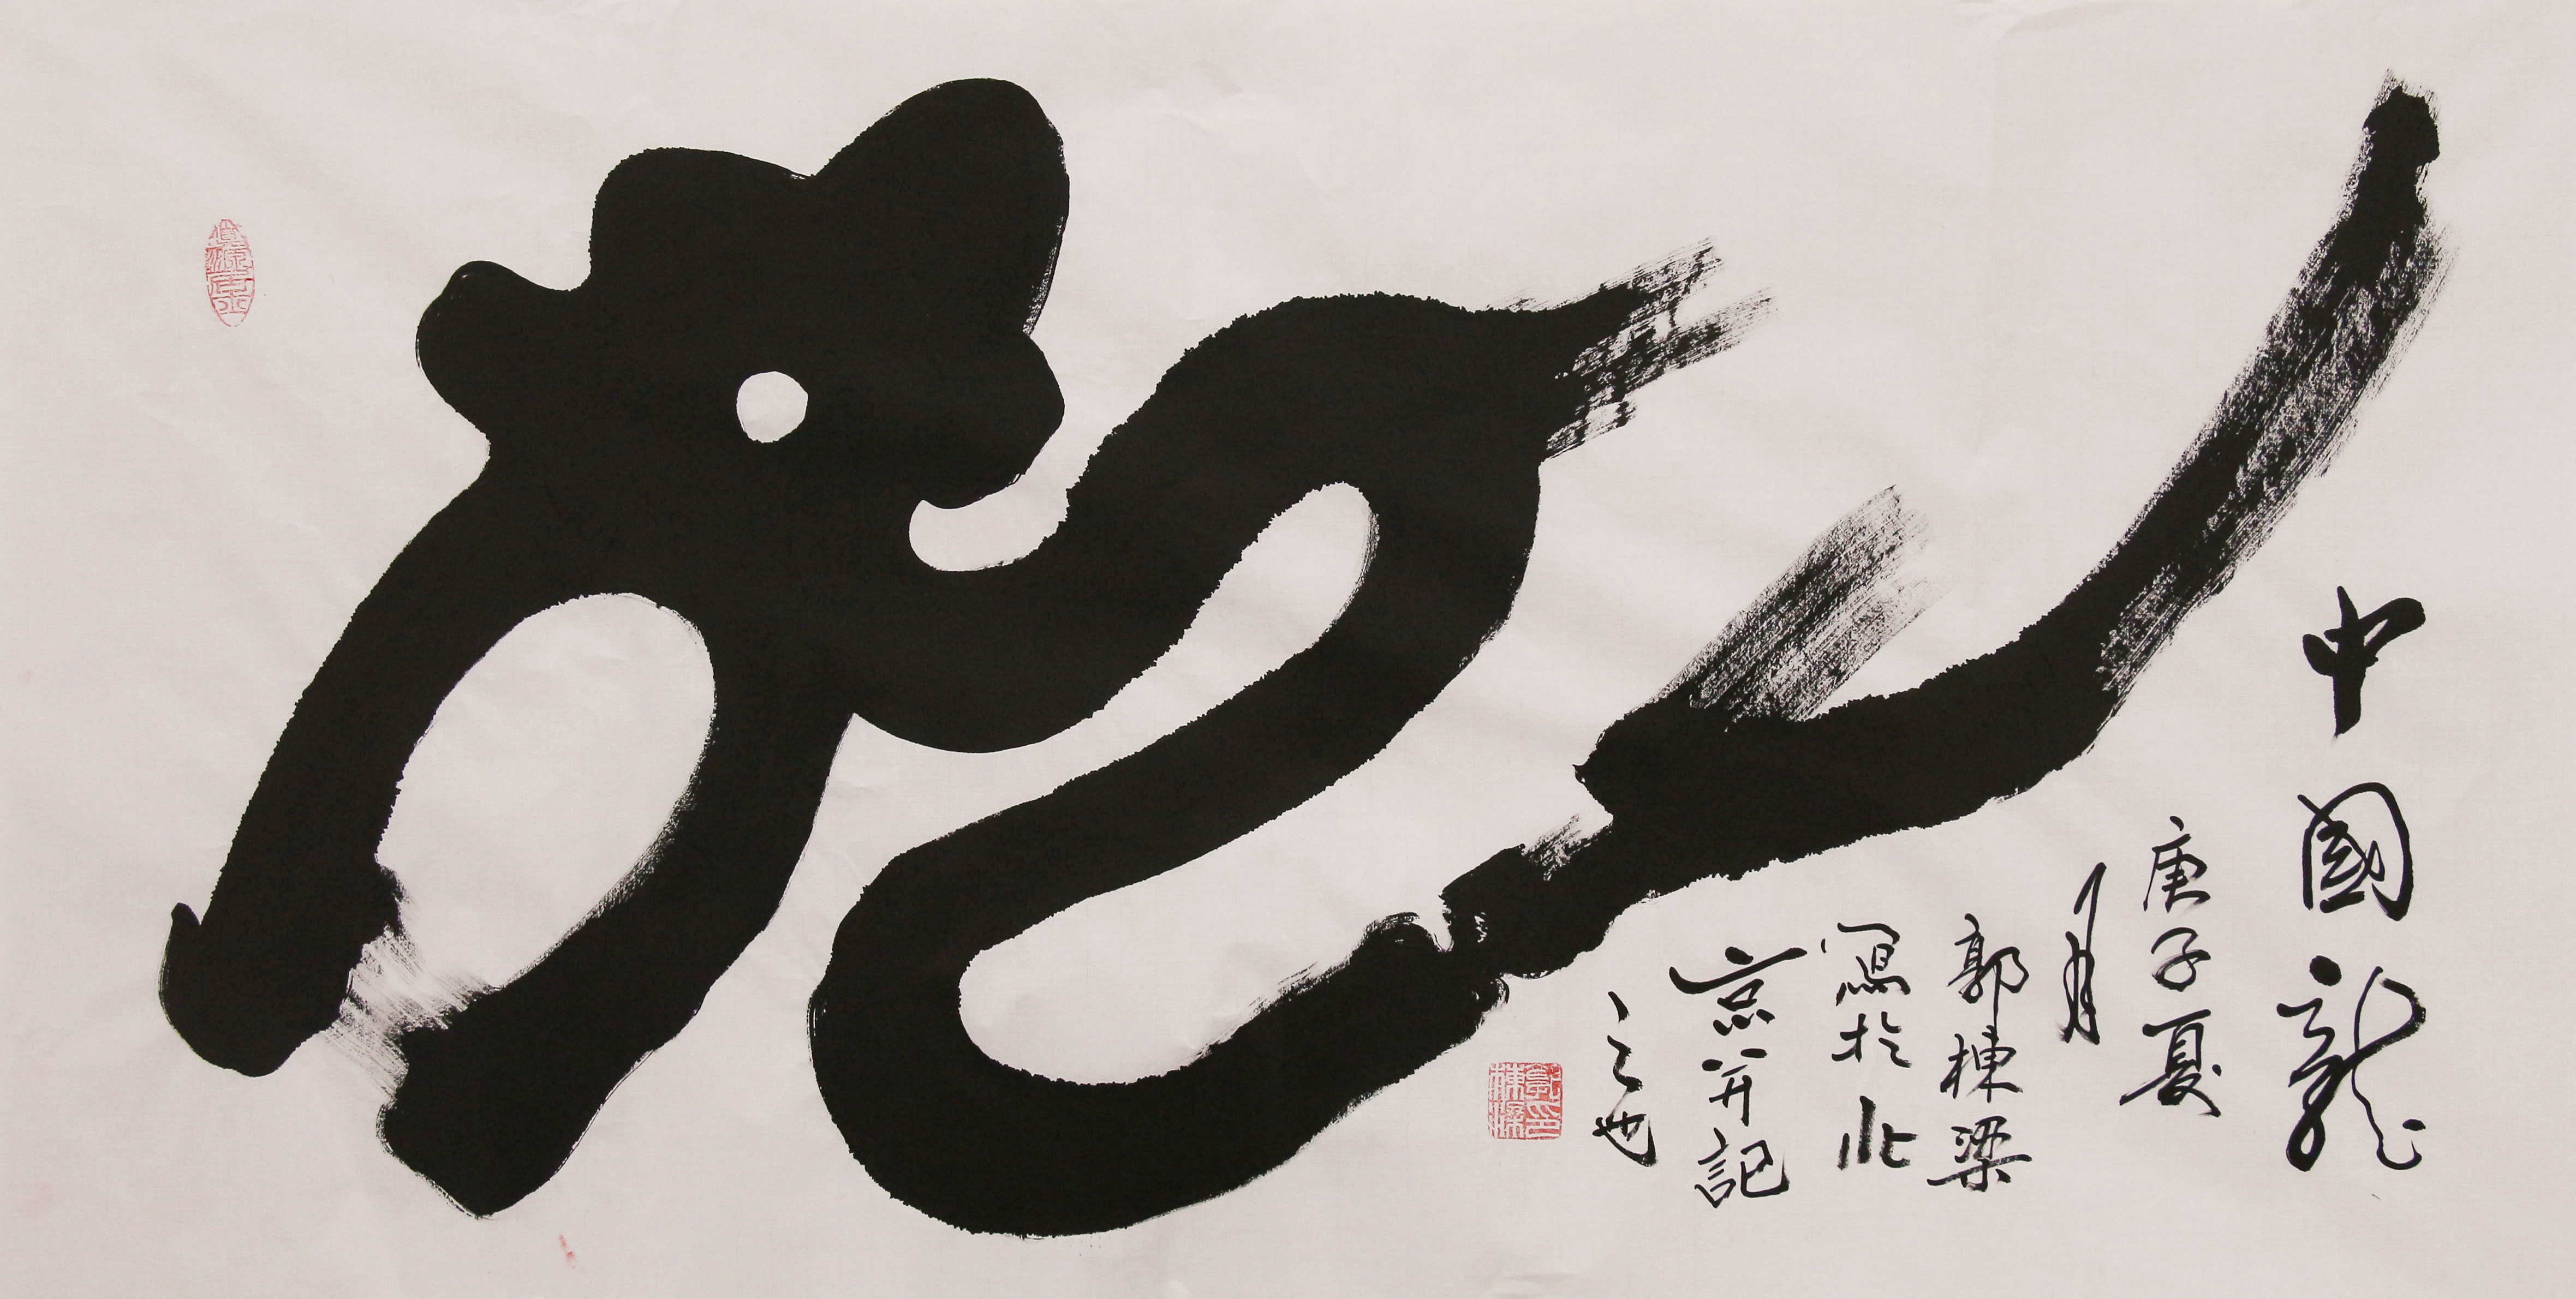 中國龍
庚子夏
月
郭棟梁
寫於北
京并記
之也
郭印棟樑